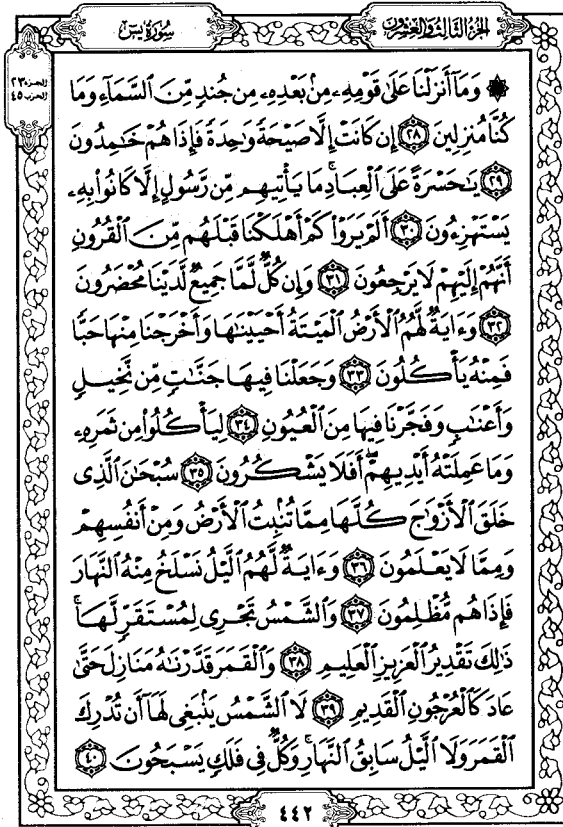 الجزء الثالث والعشرون
سُورَةُ يسٓ
الجزء ٢٣
الحزب ٤٥
۞ وَمَآ أَنزَلْنَا عَلَىٰ قَوْمِهِۦ مِنۢ بَعْدِهِۦ مِن جُندٍ مِّنَ ٱلسَّمَآءِ وَمَا
كُنَّا مُنزِلِينَ ٢٨ إِن كَانَتْ إِلَّا صَيْحَةً وَٰحِدَةً فَإِذَا هُمْ خَٰمِدُونَ
٢٩ يَٰحَسْرَةً عَلَى ٱلْعِبَادِ ۚ مَا يَأْتِيهِم مِّن رَّسُولٍ إِلَّا كَانُوا۟ بِهِۦ
يَسْتَهْزِءُونَ ٣٠ أَلَمْ يَرَوْا۟ كَمْ أَهْلَكْنَا قَبْلَهُم مِّنَ ٱلْقُرُونِ
أَنَّهُمْ إِلَيْهِمْ لَا يَرْجِعُونَ ٣١ وَإِن كُلٌّ لَّمَّا جَمِيعٌ لَّدَيْنَا مُحْضَرُونَ
٣٢ وَءَايَةٌ لَّهُمُ ٱلْأَرْضُ ٱلْمَيْتَةُ أَحْيَيْنَٰهَا وَأَخْرَجْنَا مِنْهَا حَبًّا
فَمِنْهُ يَأْكُلُونَ ٣٣ وَجَعَلْنَا فِيهَا جَنَّٰتٍ مِّن نَّخِيلٍ
وَأَعْنَٰبٍ وَفَجَّرْنَا فِيهَا مِنَ ٱلْعُيُونِ ٣٤ لِيَأْكُلُوا۟ مِن ثَمَرِهِۦ
وَمَا عَمِلَتْهُ أَيْدِيهِمْ ۖ أَفَلَا يَشْكُرُونَ ٣٥ سُبْحَٰنَ ٱلَّذِى
خَلَقَ ٱلْأَزْوَٰجَ كُلَّهَا مِمَّا تُنۢبِتُ ٱلْأَرْضُ وَمِنْ أَنفُسِهِمْ
وَمِمَّا لَا يَعْلَمُونَ ٣٦ وَءَايَةٌ لَّهُمُ ٱلَّيْلُ نَسْلَخُ مِنْهُ ٱلنَّهَارَ
فَإِذَا هُم مُّظْلِمُونَ ٣٧ وَٱلشَّمْسُ تَجْرِى لِمُسْتَقَرٍّ لَّهَا ۚ
ذَٰلِكَ تَقْدِيرُ ٱلْعَزِيزِ ٱلْعَلِيمِ ٣٨ وَٱلْقَمَرَ قَدَّرْنَٰهُ مَنَازِلَ حَتَّىٰ
عَادَ كَٱلْعُرْجُونِ ٱلْقَدِيمِ ٣٩ لَا ٱلشَّمْسُ يَنۢبَغِى لَهَآ أَن تُدْرِكَ
ٱلْقَمَرَ وَلَا ٱلَّيْلُ سَابِقُ ٱلنَّهَارِ ۚ وَكُلٌّ فِى فَلَكٍ يَسْبَحُونَ ٤٠
٤٤٢